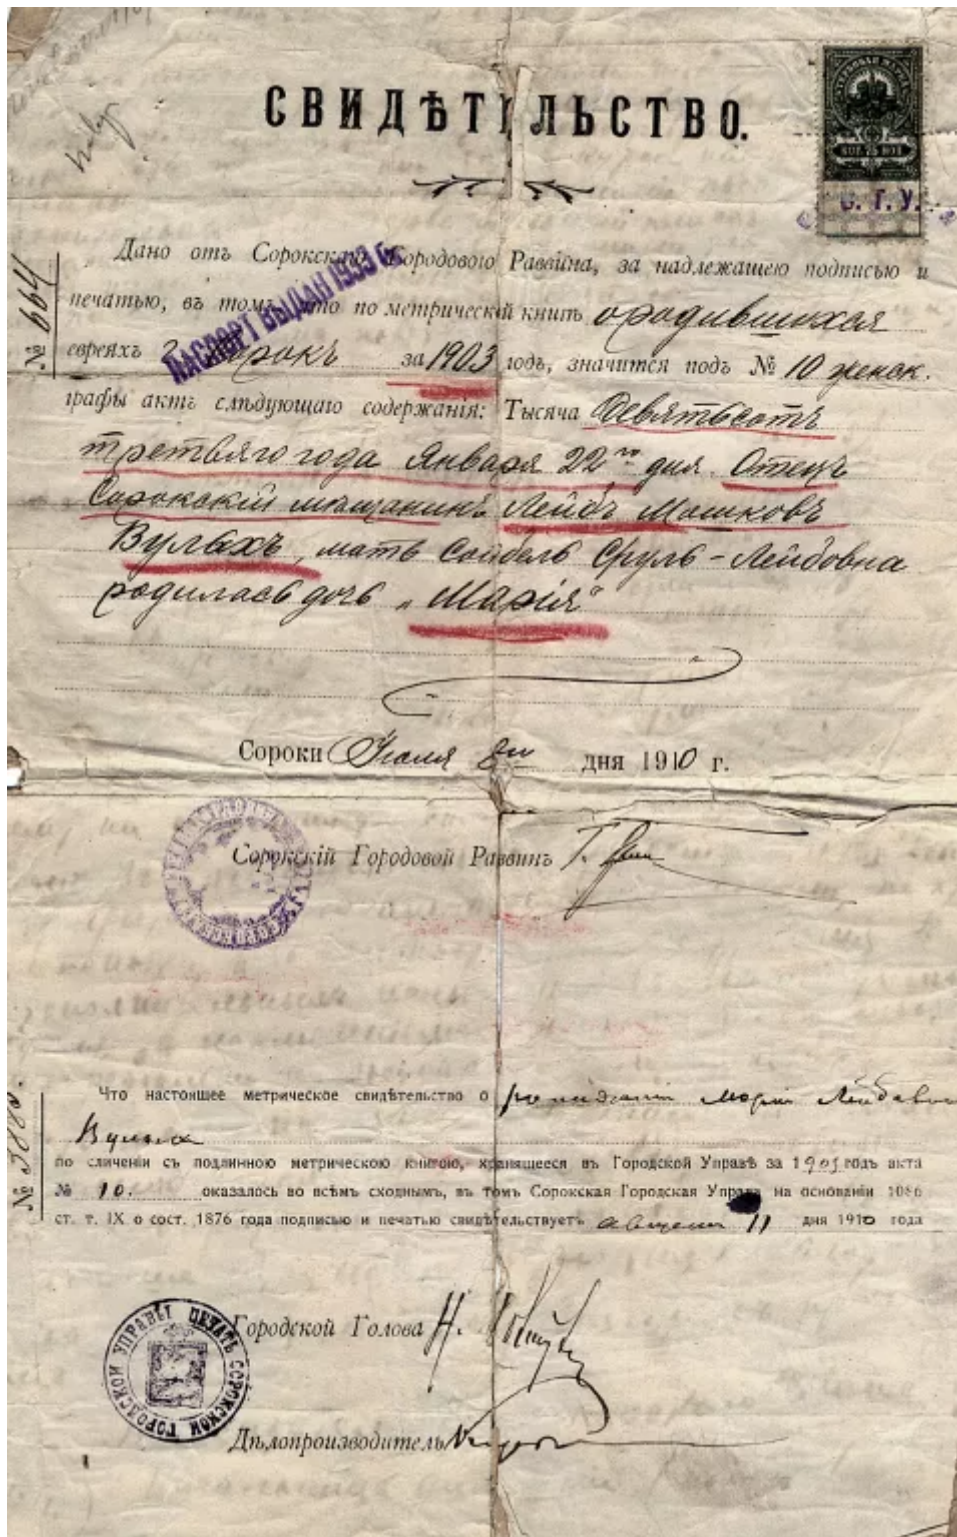 СВИДѢТЕЛЬСТВО.
КОП. 75 КОП
С. Г. У.
№ 664
Дано отъ Сорокскаго Городового Раввина, за надлежащею подписью и
печатью, въ томъ, что по метрической книгѣ о родившихся
ПАСПОРТ ВЫДАН 1933 г.
евреяхъ г. Сорокъ за 1903 годъ, значится подъ № 10 женск.
графы актъ слѣдующаго содержанія: Тысяча Девятьсотъ
третьяго года Января 22го дня. Отецъ
Сорокскій мѣщанинъ Лейбъ Мошковъ
Вульхъ, мать Сойбель Сруль-Лейбовна
родилась дочь „Марія“
Сороки Іюля 8го дня 1910 г.
Сорокскій Городовой Раввинъ
№ 3885.
Что настоящее метрическое свидѣтельство о рожденіи Маріи Лейбовны
Вульхъ
по сличеніи съ подлинною метрическою книгою, хранящееся въ Городской Управѣ за 1903 годъ акта
№ 10. оказалось во всѣмъ сходнымъ, въ томъ Сорокская Городская Управа на основаніи 1086
ст. т. IX о сост. 1876 года подписью и печатью свидѣтельствуетъ августа 11 дня 1910 года
Городской Голова Н.
ПЕЧАТЬ СОРОКСКОЙ ГОРОДСКОЙ УПРАВЫ
Дѣлопроизводитель